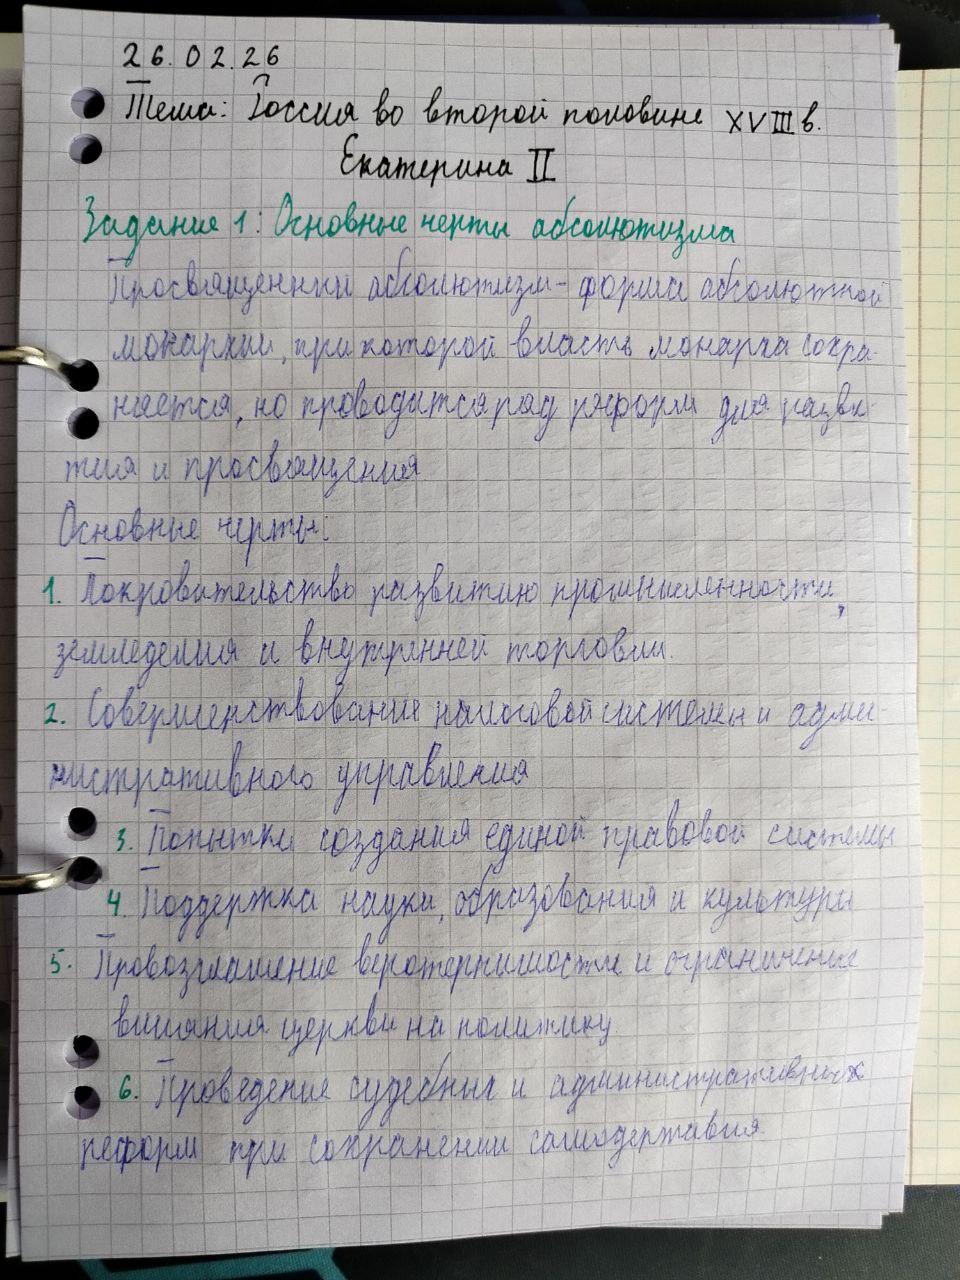 26.02.26
Тема: Россия во второй половине XVIII в.
Екатерина II
Задание 1: Основные черты абсолютизма
Просвященный абсолютизм - форма абсолютной
монархии, при которой власть монарха сохра-
няется, но проводится ряд реформ для разви-
тия и просвящения
Основные черты:
1. Покровительство развитию промышленности,
земледелия и внутренней торговли.
2. Совершенствование налоговой системы и адми-
нистративного управления
3. Попытки создания единой правовой системы
4. Поддержка науки, образования и культуры
5. Провозглашение веротерпимости и ограничение
влияния церкви на политику
6. Проведение судебных и административных
реформ при сохранении самодержавия